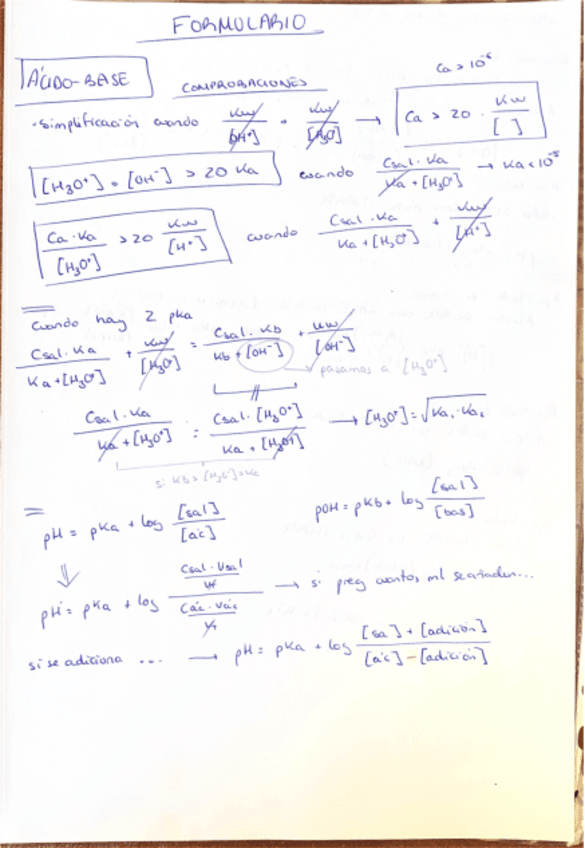 FORMULARIO
ÁCIDO-BASE
COMPROBACIONES
Ca > 10⁻⁶
·Simplificación cuando Kw/[OH⁻] = Kw/[H₃O⁺] → Ca > 20 · Kw/[ ]
[H₃O⁺] o [OH⁻] > 20 Ka cuando Csal · Ka / Ka + [H₃O⁺] → Ka < 10⁻⁵
Ca · Ka / [H₃O⁺] > 20 Kw/[H⁺] cuando Csal · Ka / Ka + [H₃O⁺] + Kw/[H⁺]
Cuando hay 2 pka
Csal · Ka / Ka + [H₃O⁺] + Kw/[H₃O⁺] = Csal · Kb / Kb + [OH⁻] + Kw/[OH⁻]
pasamos a [H₃O⁺]
Csal · Ka / Ka + [H₃O⁺] = Csal · [H₃O⁺] / Ka + [H₃O⁺] → [H₃O⁺] = √Ka₁ · Ka₂
si Kb > [H₃O⁺] > Ka
pH = pKa + log [sal]/[ác] pOH = pKb + log [sal]/[bas]
pH = pKa + log Csal · Vsal / Vt / Các · Vác / Vt → si preg cuantos ml se añaden...
si se adiciona ... → pH = pKa + log [sa] + [adición] / [ác] - [adición]